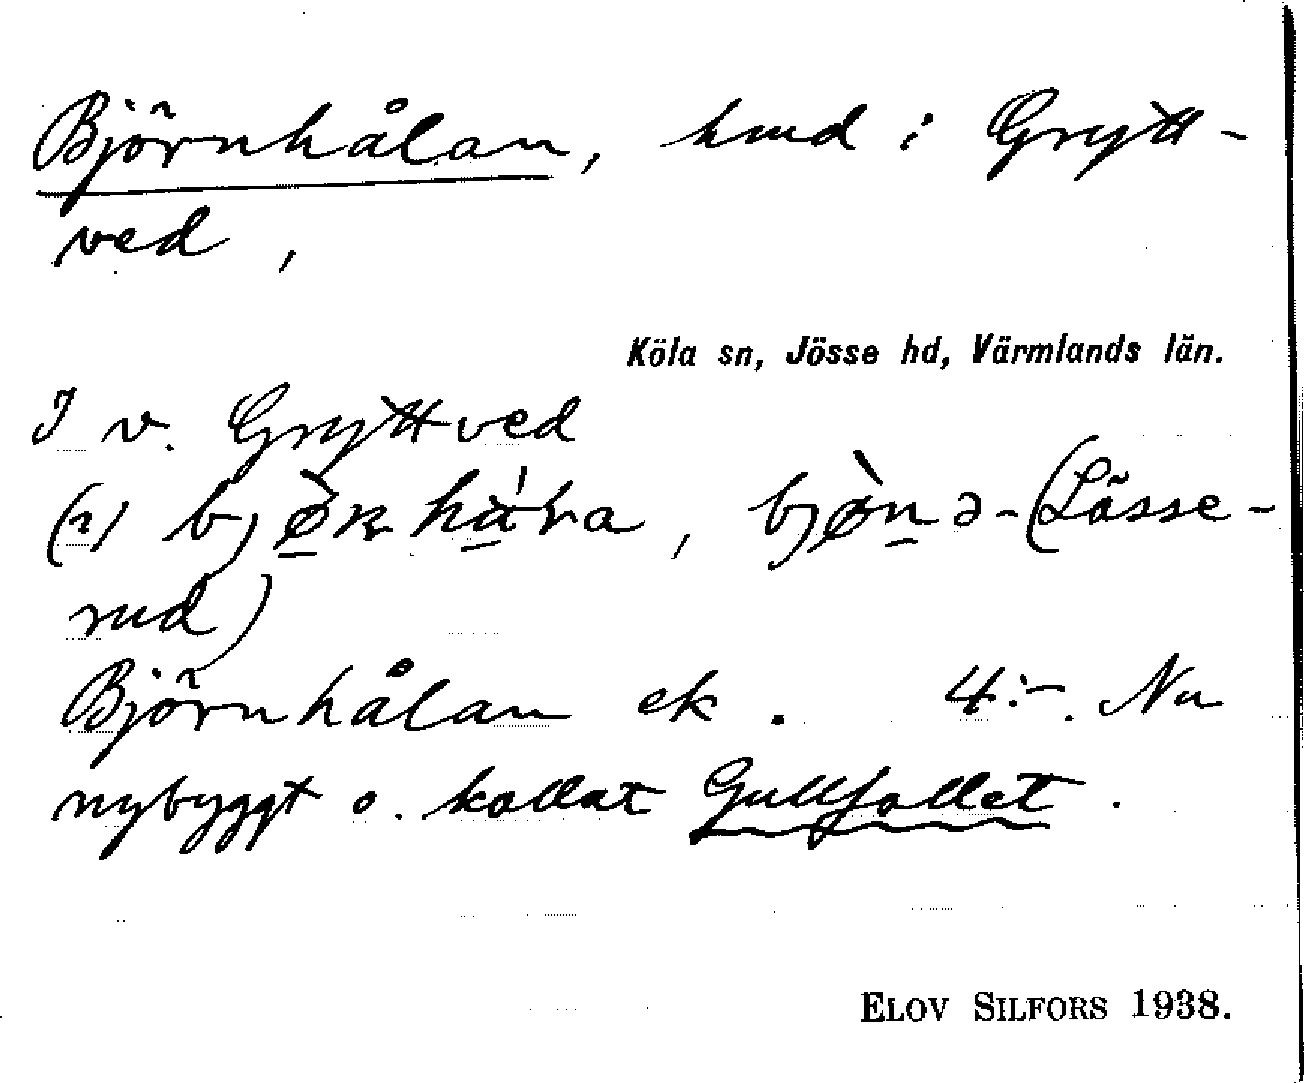 Björnhålan, hmd i Grytt-
ved,
Köla sn, Jösse hd, Värmlands län.
I v. Gryttved
bjø̀n-ə- (Lässe-
rud)
Björnhålan ek. 4:-. Nu
nybyggt o. kallat Gullfallet.
ELOV SILFORS 1938.